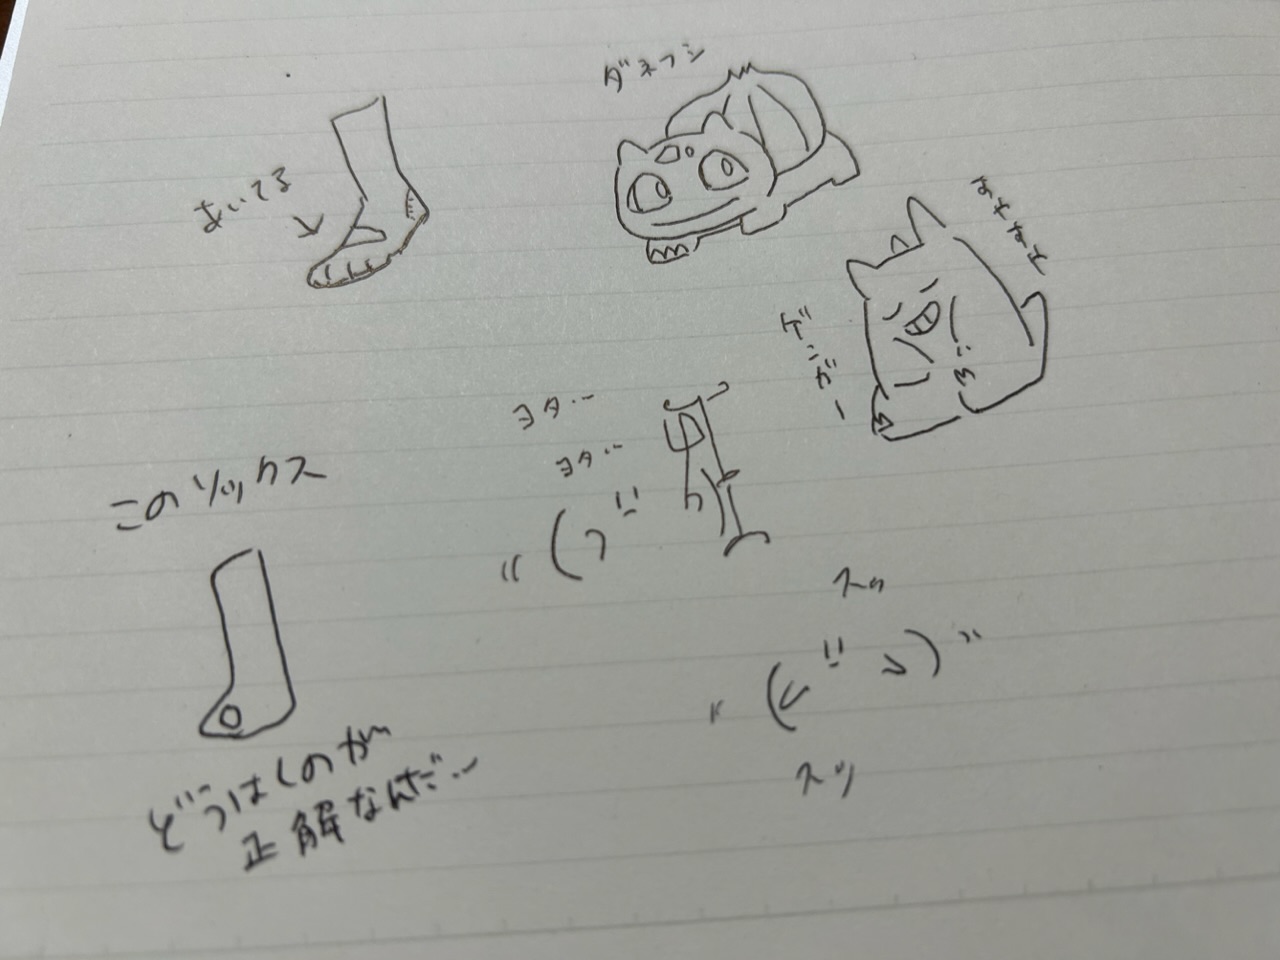 ダネフシ
あいてる
ゲンガー
ヨタ…
ヨタ…
このソックス
スッ
スッ
どうはくのが
正解なんだ…